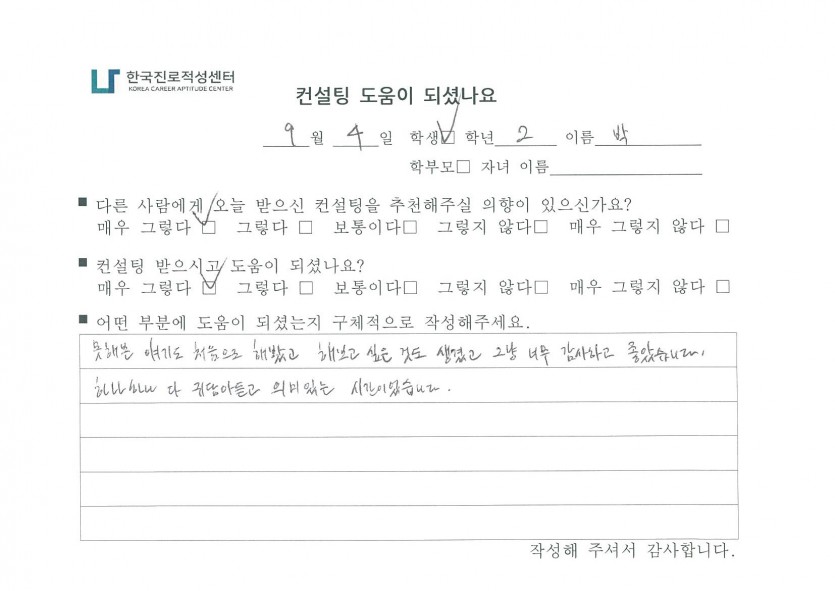 한국진로적성센터
KOREA CAREER APTITUDE CENTER
컨설팅 도움이 되셨나요
9월 4일 학생☑ 학년 2 이름 박
학부모□ 자녀 이름
■ 다른 사람에게 오늘 받으신 컨설팅을 추천해주실 의향이 있으신가요?
매우 그렇다 ☑ 그렇다 □ 보통이다□ 그렇지 않다□ 매우 그렇지 않다 □
■ 컨설팅 받으시고 도움이 되셨나요?
매우 그렇다 ☑ 그렇다 □ 보통이다□ 그렇지 않다□ 매우 그렇지 않다 □
■ 어떤 부분에 도움이 되셨는지 구체적으로 작성해주세요.
못해본 얘기도 처음으로 해봤고 해보고 싶은 것도 생겼고 그냥 너무 감사하고 좋았습니다.
하나하나 다 귀담아듣고 의미있는 시간이었습니다.
작성해 주셔서 감사합니다.